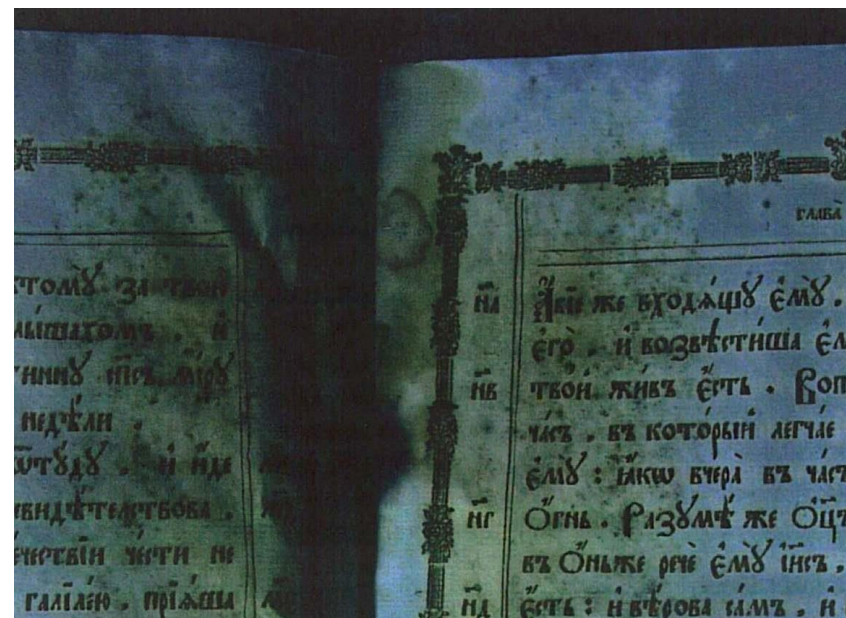 ктомꙋ̀ за твою̀
лы́шахомъ . и҆
тиннꙋ і҆и҃съ мі́рꙋ
недѣ́ли .
ѿтꙋ́дꙋ . и҆ и҆́де
свидѣ́телствова .
ечествїи че́сти не
галїле́ю . прїѧ́ша
глава̀
н҃а А҆́бїе же входѧ́щꙋ є҆мꙋ̀ .
є҆го̀ . и҆ возвѣсти́ша є҆м
н҃в тво́й жи́въ є҆́сть . Воп
ча́съ . въ кото́рый легча́е
є҆мꙋ̀ : ꙗ҆́кѡ вчера̀ въ час
н҃г Ѻ҆́гнь . Разꙋмѣ̀ же Ѻ҆ц҃ъ
въ Ѻ҆́ньже речѐ є҆мꙋ̀ і҆и҃съ .
н҃д є҆́сть : и҆ вѣ́рова са́мъ . и҆